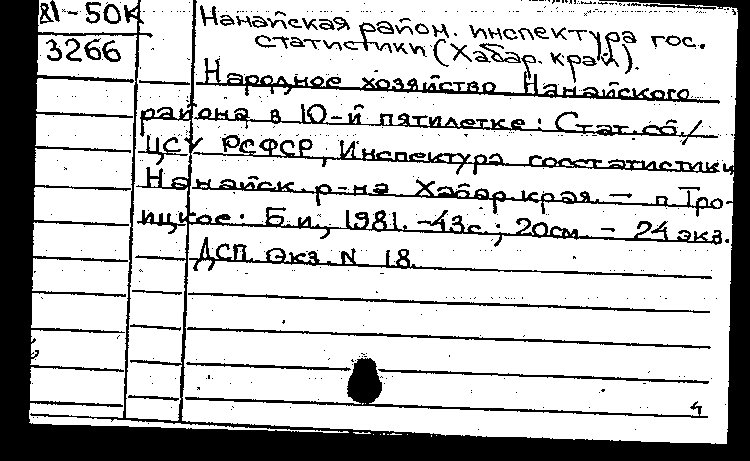 81-50К
3266
Нанайская район. инспектура гос.
статистики (Хабар. край).
Народное хозяйство Нанайского
района в 10-й пятилетке: Стат. сб./
ЦСУ РСФСР, Инспектура госстатистики
Нанайск. р-на Хабар. края. — п. Тро-
ицкое: Б.и., 1981. -43с.; 20см. - 24 экз.
ДСП. Экз. N 18.
4